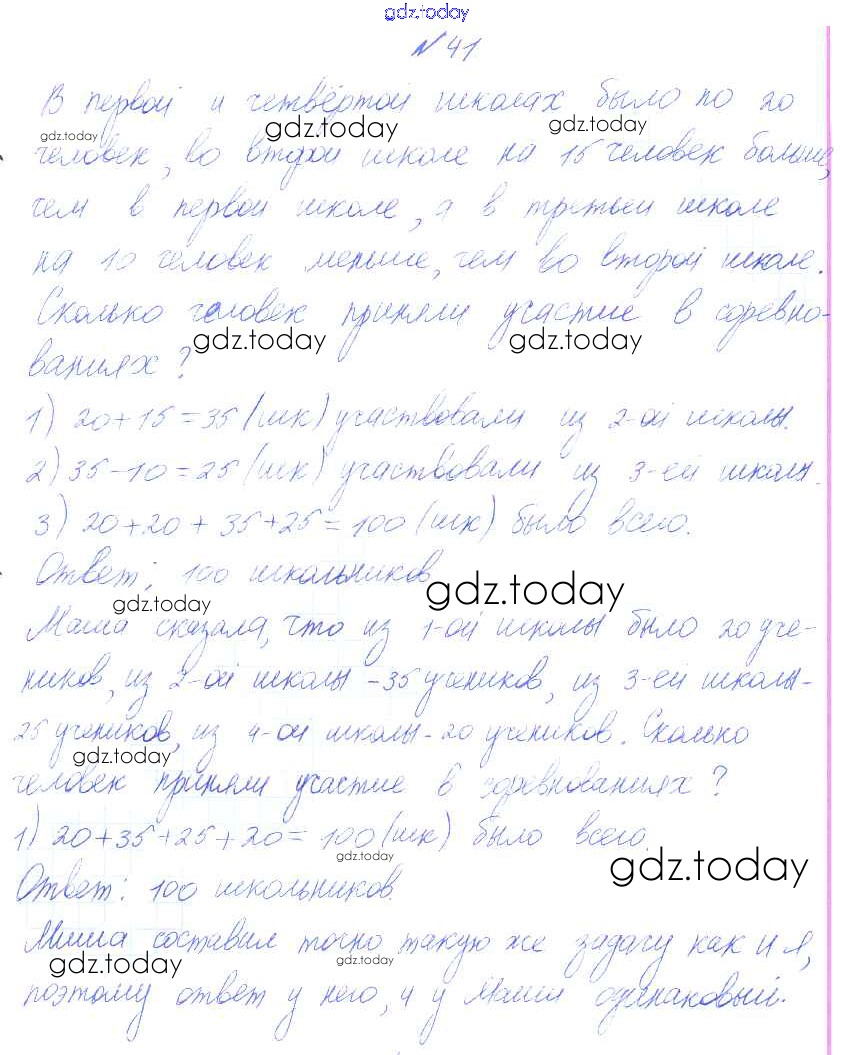 gdz.today
№ 41
В первой и четвёртой школах было по 20
gdz.today gdz.today gdz.today
человек, во второй школе на 15 человек больше,
чем в первой школе, а в третьей школе
на 10 человек меньше, чем во второй школе.
Сколько человек приняли участие в соревно-
gdz.today gdz.today
ваниях?
1) 20+15=35 (шк) участвовали из 2-ой школы.
2) 35-10=25 (шк) участвовали из 3-ей школы.
3) 20+20+35+25=100 (шк) было всего.
Ответ: 100 школьников
gdz.today gdz.today
Маша сказала, что из 1-ой школы было 20 уче-
ников, из 2-ой школы -35 учеников, из 3-ей школы-
25 учеников, из 4-ой школы-20 учеников. Сколько
gdz.today
человек приняли участие в соревнованиях?
1) 20+35+25+20=100 (шк) было всего.
gdz.today gdz.today
Ответ: 100 школьников.
Миша составил точно такую же задачу как и я,
gdz.today gdz.today
поэтому ответ у него, и у Маши одинаковый.